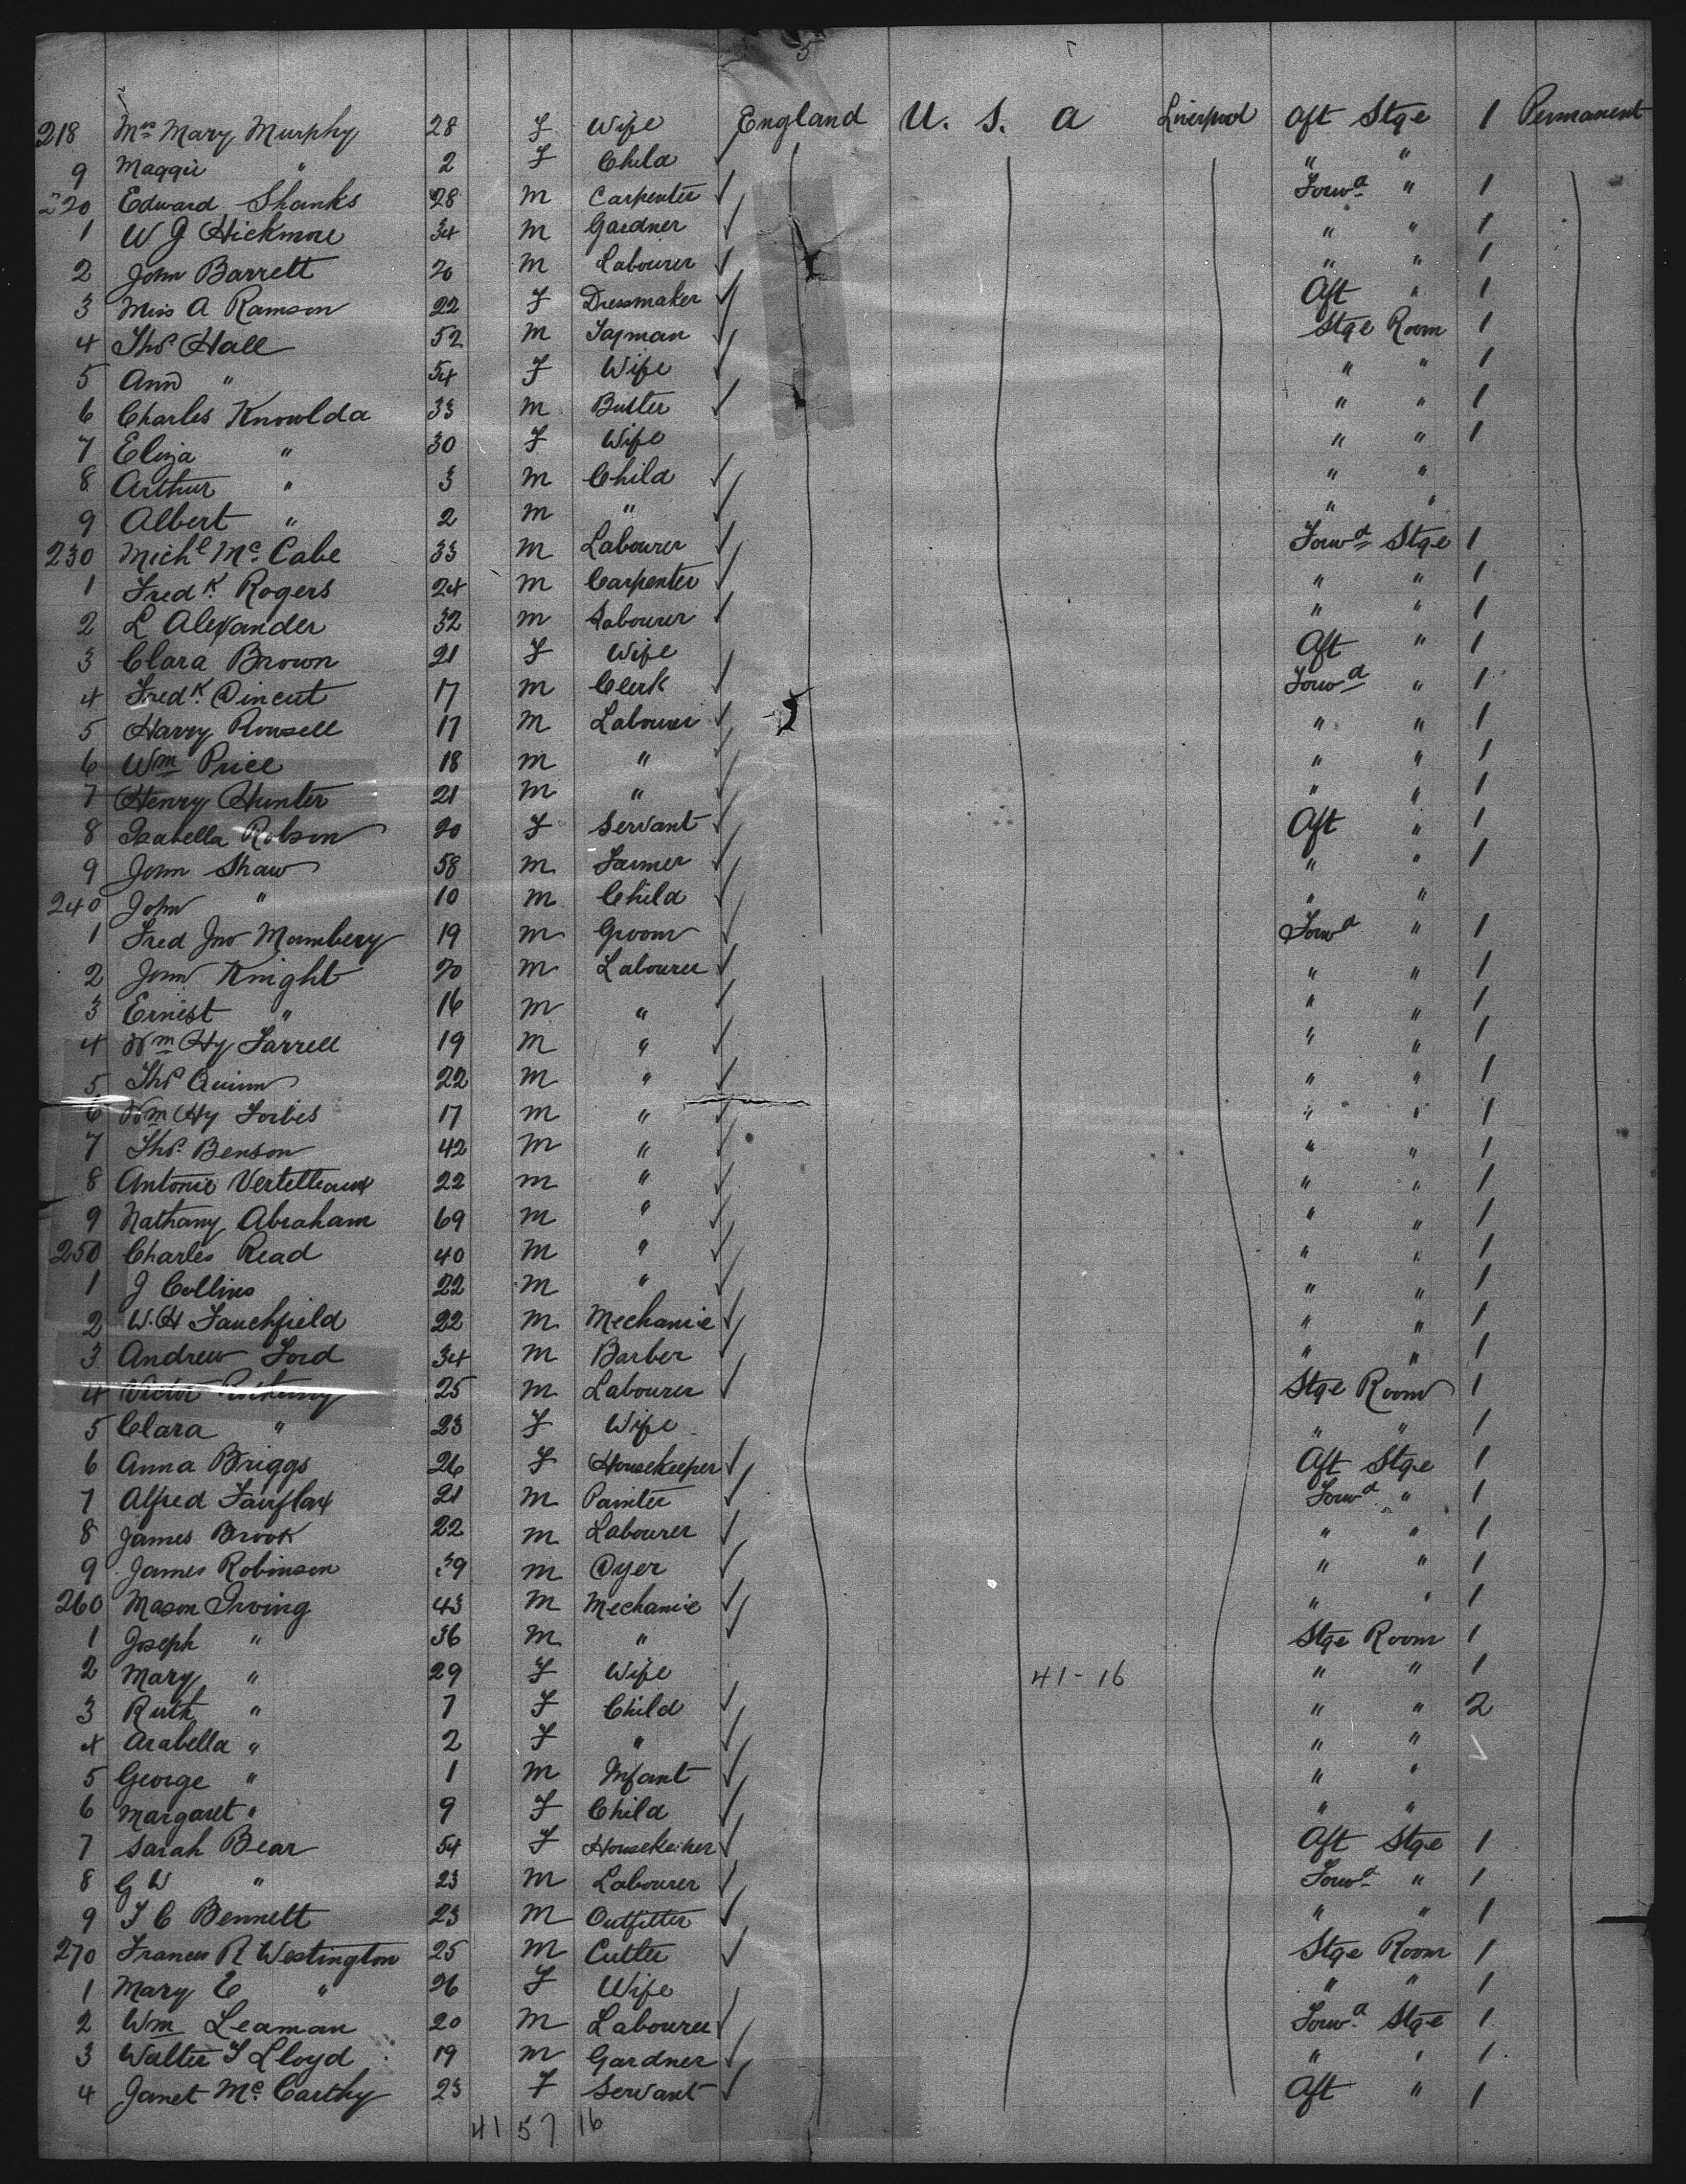 5
218 Mrs Mary Murphy 28 F Wife England U. S. A Liverpool Aft Stge 1 Permanent
9 Maggie " 2 F Child " "
220 Edward Shanks 28 M Carpenter Forwd " 1
1 W J Hickmore 34 M Gardner " " 1
2 John Barrett 20 M Labourer " " 1
3 Miss A Ramson 22 F Dressmaker Aft " 1
4 Thos Hall 52 M Stge Room 1
5 Ann " 54 F Wife " " 1
6 Charles Knowlda 33 M Butler " " 1
7 Eliza " 30 F Wife " " 1
8 Arthur " 3 M Child " "
9 Albert " 2 M " " "
230 Michl McCabe 33 M Labourer Forwd Stge 1
1 Fredk Rogers 24 M Carpenter " " 1
2 L Alexander 32 M Labourer " " 1
3 Clara Brown 21 F Wife Aft " 1
4 Fredk 17 M Clerk Forwd " 1
5 Harry Rowsell 17 M Labourer " " 1
6 Wm Price 18 M " " " 1
7 Henry Hunter 21 M " " " 1
8 Isabella Robson 20 F Servant Aft " 1
9 John Shaw 58 M Farmer " " 1
240 John " 10 M Child " "
1 Fred Jno Mambery 19 M Groom Forwd " 1
2 John Knight 20 M Labourer " " 1
3 Ernest " 16 M " " " 1
4 Wm Hy Farrell 19 M " " " 1
5 Thos Quinn 22 M " " " 1
6 Wm Hy Forbes 17 M " " " 1
7 Thos Benson 42 M " " " 1
8 Antonie 22 M " " " 1
9 Nathany Abraham 69 M " " " 1
250 Charles Read 40 M " " " 1
1 J Collins 22 M " " " 1
2 W. H Fauchfield 22 M Mechanic " " 1
3 Andrew Ford 34 M Barber " " 1
4 Victor 25 M Labourer Stge Room 1
5 Clara " 23 F Wife " " 1
6 Anna Briggs 26 F Housekeeper Aft Stge 1
7 Alfred Fairflax 21 M Painter Forwd " 1
8 James Brook 22 M Labourer " " 1
9 James Robinson 39 M Dyer " " 1
260 Mason Irving 43 M Mechanic " " 1
1 Joseph " 36 M " Stge Room 1
2 Mary " 29 F Wife 41-16 " " 1
3 Ruth " 7 F Child " " 2
4 Arabella " 2 F " " "
5 George " 1 M Infant " "
6 Margaret " 9 F Child " "
7 Sarah Bear 54 F Housekeeper Aft Stge 1
8 G W " 23 M Labourer Forwd " 1
9 T C Bennett 23 M Outfitter " " 1
270 Frances R Westington 25 M Cutler Stge Room 1
1 Mary E " 26 F Wife " " 1
2 Wm Leaman 20 M Labourer Forwd Stge 1
3 Walter T Lloyd 19 M Gardner " " 1
4 Janet McCarthy 23 F Servant Aft " 1
41 57 16